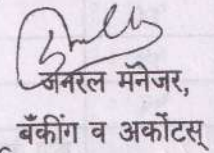 जनरल मॅनेजर,
बँकींग व अकोंटस्